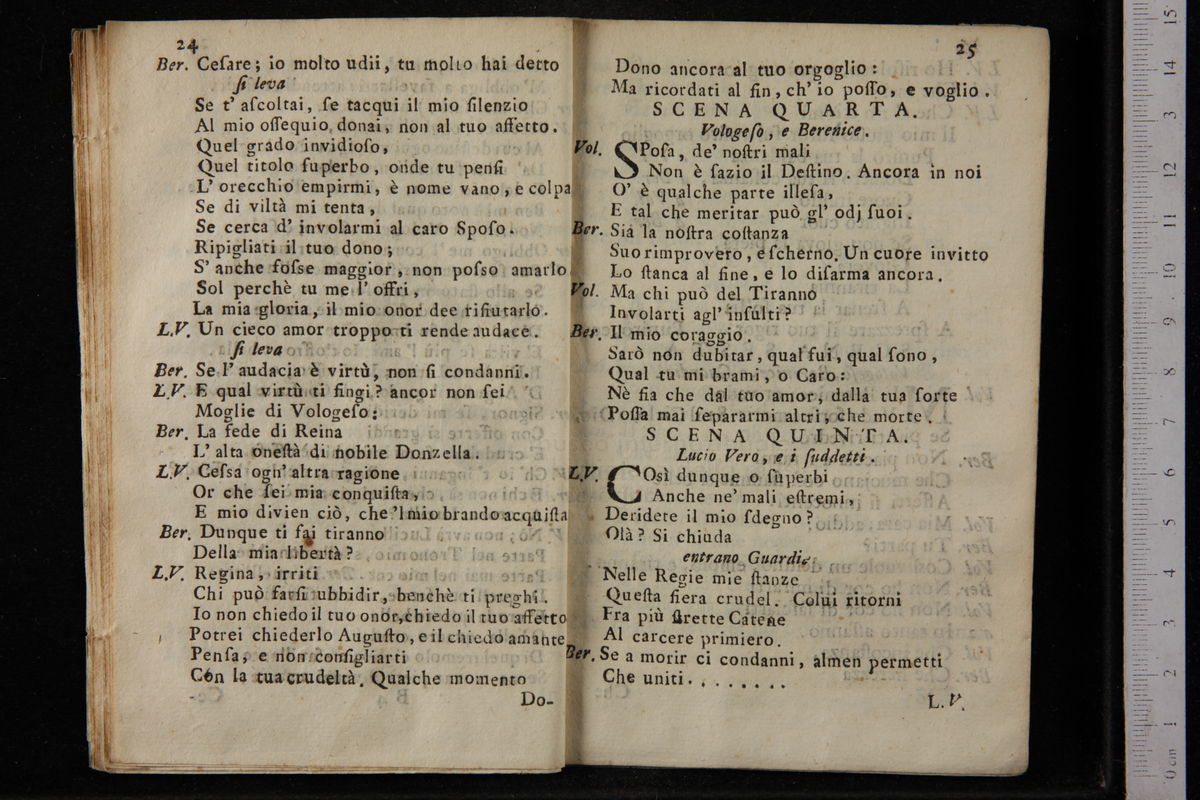 24
Ber. Ceſare; io molto udii, tu molto hai detto
ſi leva
Se t' aſcoltai, ſe tacqui il mio ſilenzio
Al mio oſſequio donai, non al tuo affetto.
Quel grado invidioſo,
Quel titolo ſuperbo, onde tu penſi
L' orecchio empirmi, è nome vano, e colpa
Se di viltà mi tenta,
Se cerca d' involarmi al caro Spoſo.
Ripigliati il tuo dono;
S' anche foſse maggior, non poſso amarlo
Sol perchè tu me l' offri,
La mia gloria, il mio onor dee rifiutarlo.
L.V. Un cieco amor troppo ti rende audace.
ſi leva
Ber. Se l' audacia è virtù, non ſi condanni.
L.V. E qual virtù ti fingi? ancor non ſei
Moglie di Vologeſo:
Ber. La fede di Reina
L' alta oneſtà di nobile Donzella.
L.V. Ceſsa ogn' altra ragione
Or che ſei mia conquiſta,
E mio divien ciò, che 'l mio brando acquiſta
Ber. Dunque ti fai tiranno
Della mia libertà?
L.V. Regina, irriti
Chi può farſi ubbidir, benchè ti preghi.
Io non chiedo il tuo onor, chiedo il tuo affetto
Potrei chiederlo Auguſto, e il chiedo amante
Penſa, e non conſigliarti
Còn la tua crudeltà. Qualche momento
Do-
25
Dono ancora al tuo orgoglio:
Ma ricordati al fin, ch' io poſſo, e voglio.
SCENA QUARTA.
Vologeſo, e Berenice.
Vol. SPoſa, de' noſtri mali
Non è ſazio il Deſtino. Ancora in noi
O' è qualche parte illeſa,
E tal che meritar può gl' odj ſuoi.
Ber. Sia la noſtra coſtanza
Suo rimprovero, e ſcherno. Un cuore invitto
Lo ſtanca al fine, e lo diſarma ancora.
Vol. Ma chi può del Tiranno
Involarti agl' inſulti?
Ber. Il mio coraggio.
Sarò non dubitar, qual fui, qual ſono,
Qual tu mi brami, o Caro:
Nè fia che dal tuo amor, dalla tua ſorte
Poſſa mai ſepararmi altri, che morte.
SCENA QUINTA.
Lucio Vero, e i ſuddetti.
L.V. COsì dunque o ſuperbi
Anche ne' mali eſtremi,
Deridete il mio ſdegno?
Olà? Si chiuda
entrano Guardie
Nelle Regie mie ſtanze
Queſta fiera crudel. Colui ritorni
Fra più ſtrette Catene
Al carcere primiero.
Ber. Se a morir ci condanni, almen permetti
Che uniti. . . . . . . .
L. V.